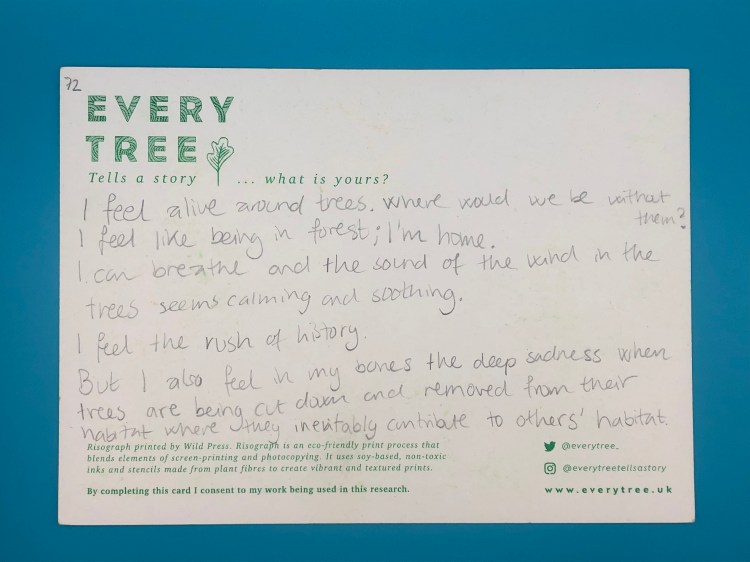 72
EVERY
TREE
Tells a story ... what is yours?
I feel alive around trees. Where would we be without
them?
I feel like being in forest; I'm home.
I can breathe and the sound of the wind in the
trees seems calming and soothing.
I feel the rush of history.
But I also feel in my bones the deep sadness when
trees are being cut down and removed from their
habitat where they inevitably contribute to others' habitat.
Risograph printed by Wild Press. Risograph is an eco-friendly print process that
blends elements of screen-printing and photocopying. It uses soy-based, non-toxic
inks and stencils made from plant fibres to create vibrant and textured prints.
By completing this card I consent to my work being used in this research.
@everytree_
@everytreetellsastory
www.everytree.uk